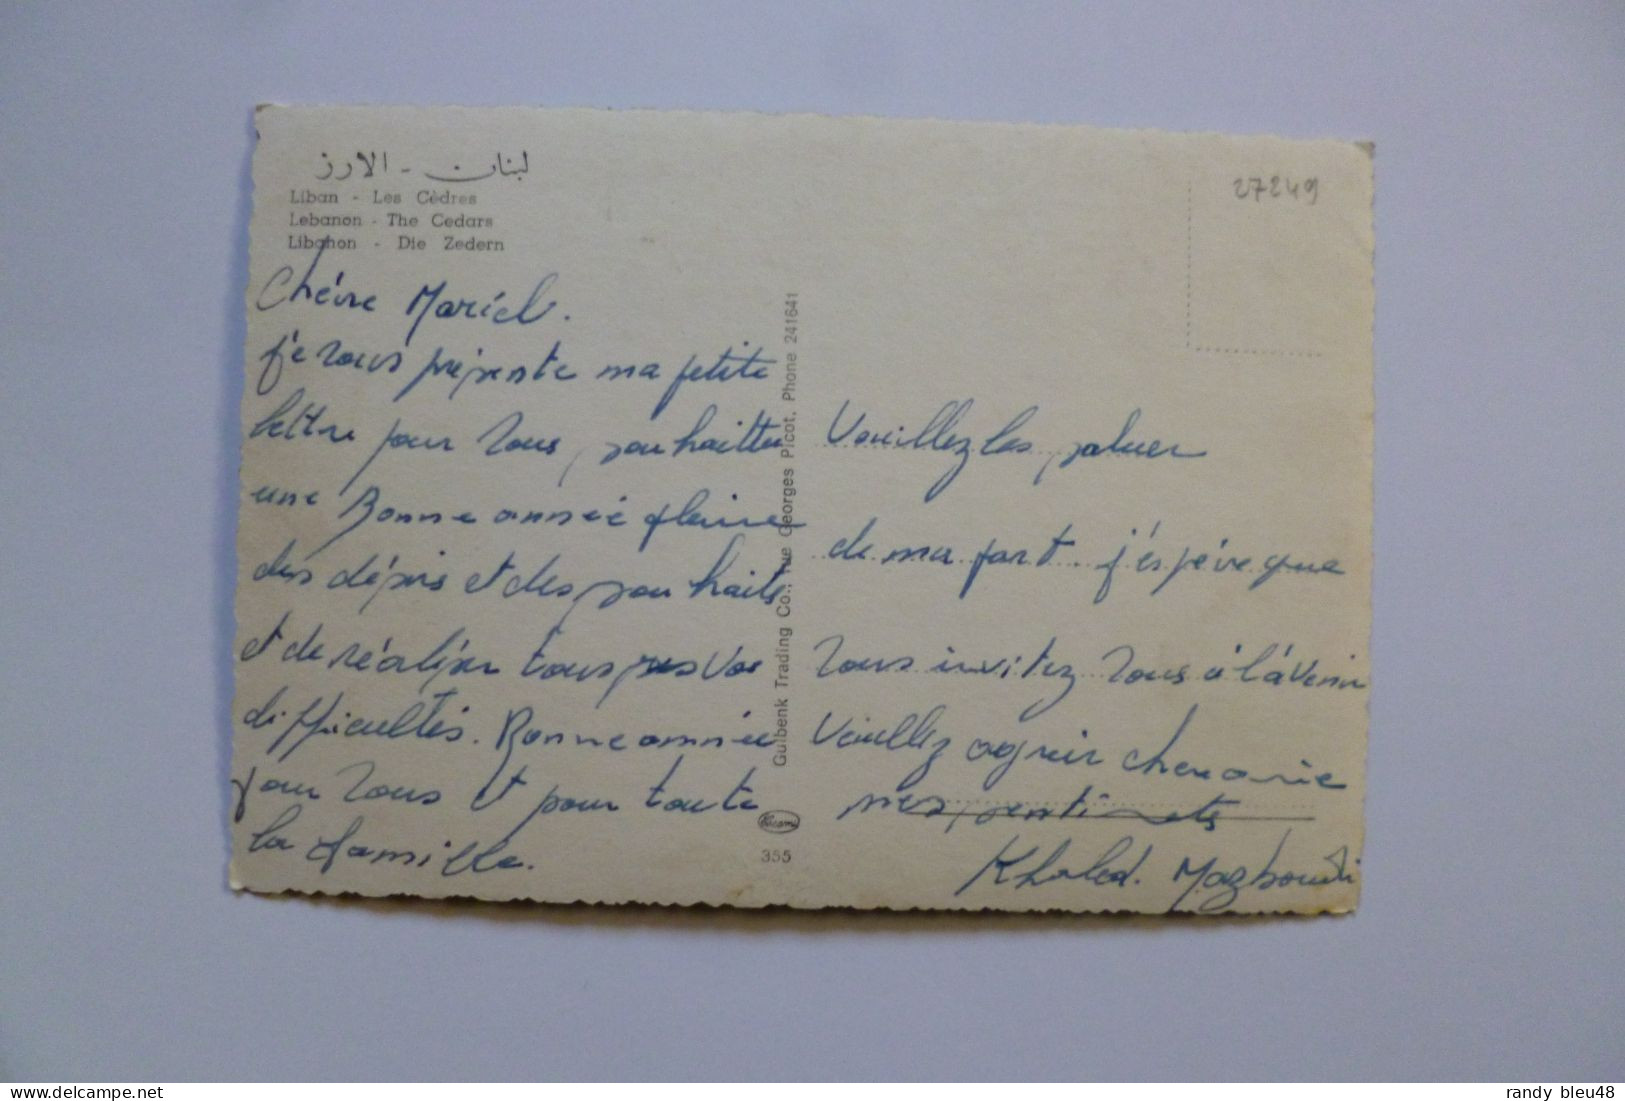 لبنان - الارز
Liban - Les Cèdres
Lebanon - The Cedars
Libanon - Die Zedern
27249
Chére Mariel.
j'e vous présente ma petite
lettre pour vous, souhaitter
une Bonne année pleine
des désirs et des souhaits
et de réaliser tous vos
difficultés. Bonne année
pour vous et pour toute
la famille.
Gulbenk Trading Co., rue Georges Picot. Phone 241641
355
Veuillez les saluer
de ma part. j'éspére que
vous invitez vous à l'avenir
Veuillez agréir cher amie
mes sentiments
Khaled. Mazboudi
randy bleu48